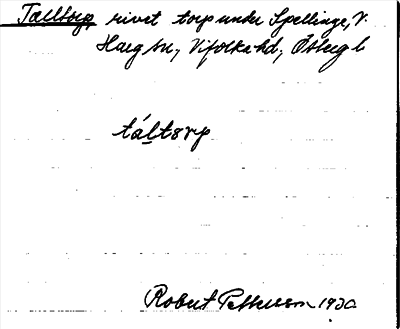 Talltorp, rivet torp under Spellinge, V.
Harg sn, Vifolka hd, Östergl
táltorp
Robert Pettersson 1930